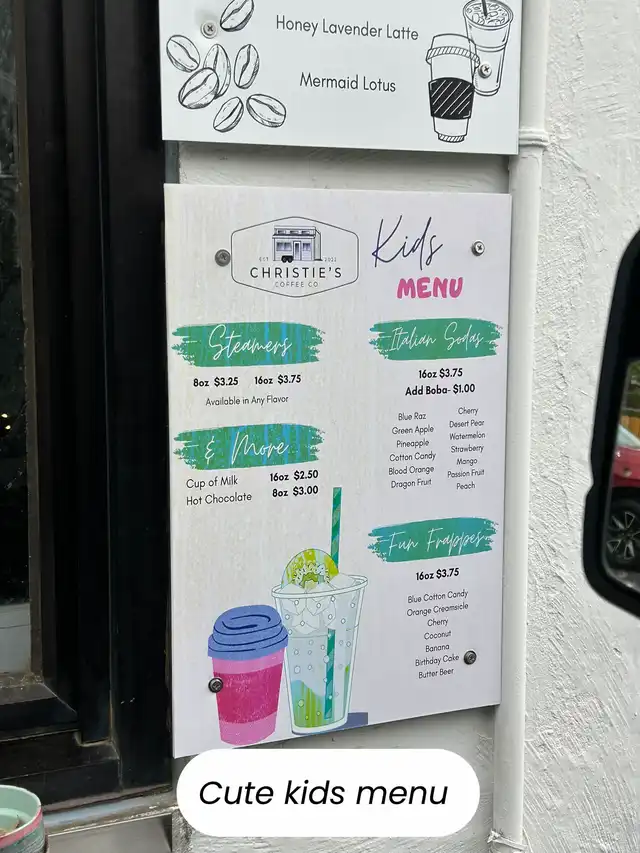 Honey Lavender Latte
Mermaid Lotus
EST 2022
CHRISTIE'S
COFFEE CO.
Kids
MENU
Steamers
8oz $3.25 16oz $3.75
Available in Any Flavor
& More
Cup of Milk 16oz $2.50
Hot Chocolate 8oz $3.00
Italian Sodas
16oz $3.75
Add Boba- $1.00
Blue Raz
Green Apple
Pineapple
Cotton Candy
Blood Orange
Dragon Fruit
Cherry
Desert Pear
Watermelon
Strawberry
Mango
Passion Fruit
Peach
Fun Frappes
16oz $3.75
Blue Cotton Candy
Orange Creamsicle
Cherry
Coconut
Banana
Birthday Cake
Butter Beer
Cute kids menu